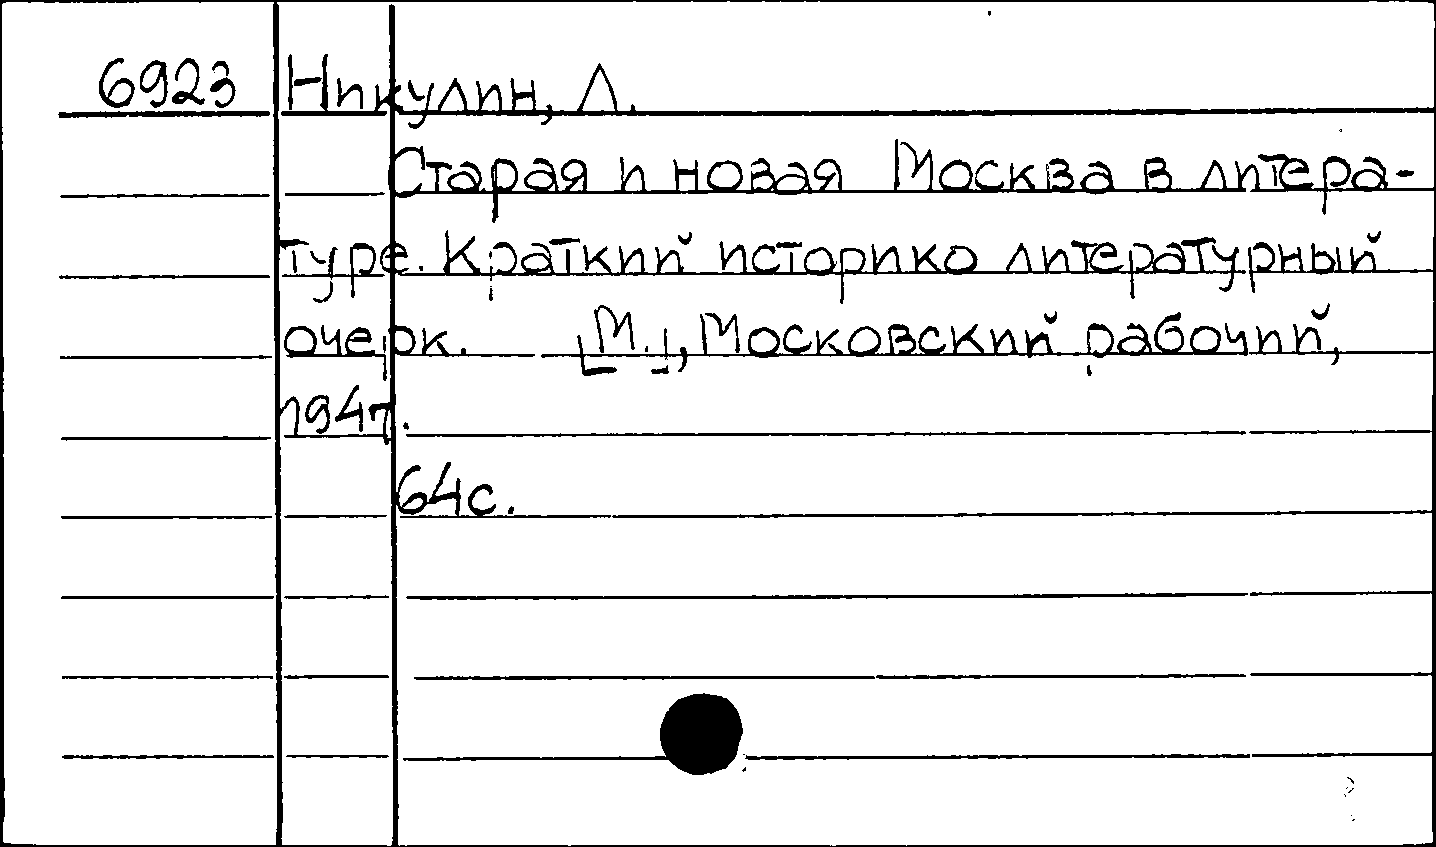 6923 Никулин, Л.
Старая и новая Москва в литера-
туре. Краткий историко литературный
очерк. [М.], Московский рабочий,
1947.
64с.